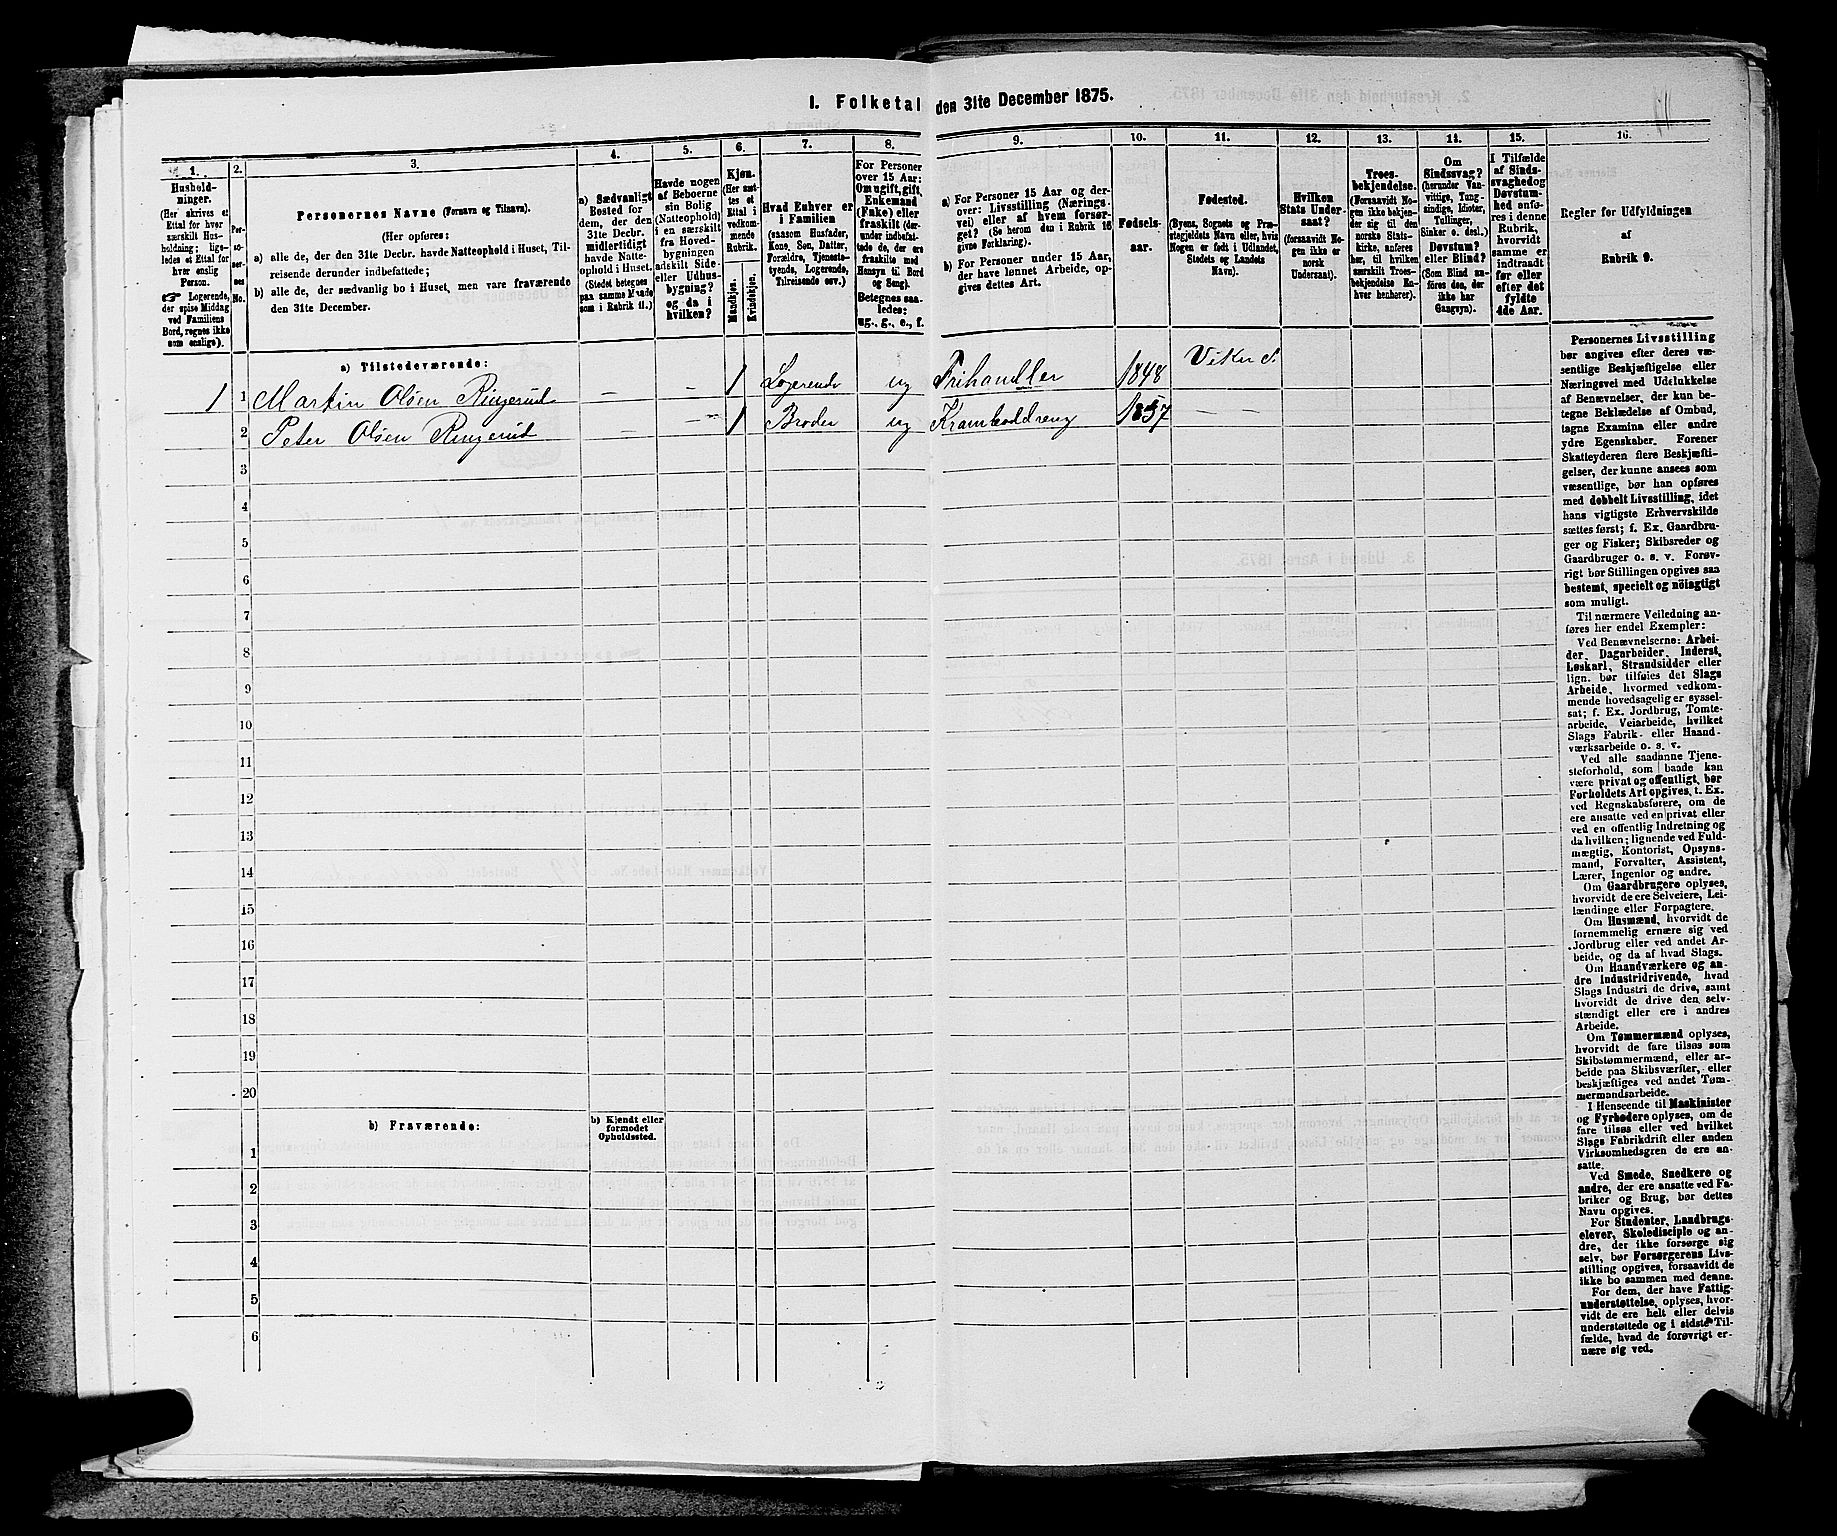 I. Folketal den 31te December 1875.
1.
Hushold-
ninger.
(Her skrives et
Ettal for hver
særskilt Hus-
holdning; lige-
ledes et Ettal for
hver enslig
Person.
Logerende,
der spise Middag
ved Familiens
Bord, regnes ikke
som enslige).
2.
Per-
so-
ner-
nes
No.
3.
Personernes Navne (Fornavn og Tilnavn).
(Her opføres:
a) alle de, der den 31te Decbr. havde Natteophold i Huset, Til-
reisende derunder indbefattede;
b) alle de, der sædvanlig bo i Huset, men vare fraværende
den 31te December.
4.
a) Sædvanligt
Bosted for
dem, der den
31te Decbr.
midlertidigt
havde Natte-
ophold i Huset.
(Stedet betegnes
paa samme Maade
som i Rubrik 11.)
5.
Havde nogen
af Beboerne
sin Bolig
(Natteophold)
i en særskilt
fra Hoved-
bygningen
adskilt Side-
eller Udhus-
bygning?
og da i
hvilken?
6.
Kjøn.
(Her sæt-
tes et
Ettal i
vedkom-
mende
Rubrik.
Mandkjøn.
Kvindekjøn.
7.
Hvad Enhver er
i Familien
(saasom Husfader,
Kone, Søn, Datter,
Forældre, Tjeneste-
tyende, Logerende,
Tilreisende osv.)
8.
For Personer
over 15 Aar:
Om ugift, gift,
Enkemand
(Enke) eller
fraskilt (der-
under indbefat-
tede de, der ere
fraskilte med
Hensyn til Bord
og Seng).
Betegnes saa-
ledes:
ug., g., e., f.
9.
a) For Personer 15 Aar og der-
over: Livsstilling (Nærings-
vei) eller af hvem forsør-
get? (Se herom den i Rubrik 16
givne Forklaring).
b) For Personer under 15 Aar,
der have lønnet Arbeide, op-
gives dettes Art.
10.
Fødsels-
aar.
11.
Fødested.
(Byens, Sognets og Præ-
stegjeldets Navn eller, hvis
Nogen er født i Udlandet,
Stedets og Landets
Navn).
12.
Hvilken
Stats Under-
saat?
(forsaavidt No-
gen ikke er
norsk
Undersaat).
13.
Troes-
bekjendelse.
(Forsaavidt No-
gen ikke bekjen-
der sig til den
norske Stats-
kirke, anføres
her, til hvilken
særskilt Troes-
bekjendelse En-
hver henhører).
14.
Om
Sindssvag?
(herunder Van-
vittige, Tung-
sindige, Idioter,
Tullinger,
Sinker o. desl.)
Døvstum?
eller Blind?
(Som Blind an-
føres den, der
ikke har
Gangsyn).
15.
I Tilfælde
af Sinds-
svaghed og
Døvstum-
hed anfø-
res i denne
Rubrik,
hvorvidt
samme er
indtraadt
før eller
efter det
fyldte
4de Aar.
16.
Regler for Udfyldningen
af
Rubrik 9.
a) Tilstedeværende:
1 1 Martin Olsen Ringerud — — 1 Logerende ug Frihandler 1848 Viker S.
2 Peter Olsen Ringerud — — 1 Broder ug Kramboddreng 1857 — —
3
4
5
6
7
8
9
10
11
12
13
14
15
16
17
18
19
20
b) Fraværende:
b) Kjendt eller
formodet
Opholdssted.
1
2
3
4
5
6
Personernes Livsstilling
bør angives efter deres væ-
sentlige Beskjæftigelse eller
Næringsvei med Udelukkelse
af Benævnelser, der kun be-
tegne Beklædelse af Ombud,
tagne Examina eller andre
ydre Egenskaber. Forener
Skatteyderen flere Beskjæfti-
gelser, der kunne ansees som
væsentlige, bør han opføres
med dobbelt Livsstilling, idet
hans vigtigste Erhvervskilde
sættes først; f. Ex. Gaardbru-
ger og Fisker; Skibsreder og
Gaardbruger o. s. v. Forøv-
rigt bør Stillingen opgives saa
bestemt, specielt og nöiagtigt
som muligt.
Til nærmere Veiledning an-
føres her endel Exempler:
Ved Benævnelserne: Arbei-
der, Dagarbeider, Inderst,
Løskarl, Strandsidder eller
lign. bør tilføies det Slags
Arbeide, hvormed vedkom-
mende hovedsagelig er syssel-
sat; f. Ex. Jordbrug, Tomte-
arbeide, Veiarbeide, hvilket
Slags Fabrik- eller Haand-
værksarbeide o. s. v.
Ved alle saadanne Tjene-
steforhold, som baade kan
være privat og offentligt, bør
Forholdets Art opgives, t. Ex.
ved Regnskabsførere, om de
ere ansatte ved en privat eller
ved en offentlig Indretning og
da hvilken; lignende ved Fuld-
mægtig, Kontorist, Opsyns-
mand, Forvalter, Assistent,
Lærer, Ingeniør og andre.
Om Gaardbrugere oplyses,
hvorvidt de ere Selveiere, Lei-
lændinge eller Forpagtere.
Om Husmænd, hvorvidt de
fornemmelig ernære sig ved
Jordbrug eller ved andet Ar-
beide, og da af hvad Slags.
Om Haandværkere og an-
dre Industridrivende, hvad
Slags Industri de drive, samt
hvorvidt de drive den selv-
stændigt eller ere i andres
Arbeide.
Om Tømmermænd oplyses,
hvorvidt de fare tilsøs som
Skibstømmermænd, eller ar-
beide paa Skibsværfter, eller
beskjæftiges ved andet Tøm-
mermandsarbeide.
I Henseende til Maskinister
og Fyrbødere oplyses, om de
fare tilsøs eller ved hvilket
Slags Fabrikdrift eller anden
Virksomhedsgren de ere an-
satte.
Ved Smede, Snedkere og
andre, der ere ansatte ved Fa-
briker og Brug, bør dettes
Navn opgives.
For Studenter, Landbrugs-
elever, Skoledisciple og an-
dre, der ikke forsørge sig
selv, bør Forsørgerens Livs-
stilling opgives, forsaavidt de
ikke bo sammen med denne.
For dem, der have Fattig-
understøttelse, oplyses, hvor-
vidt de ere helt eller delvis
understøttede og i sidste Til-
fælde, hvad de forøvrigt er-
nære sig ved.